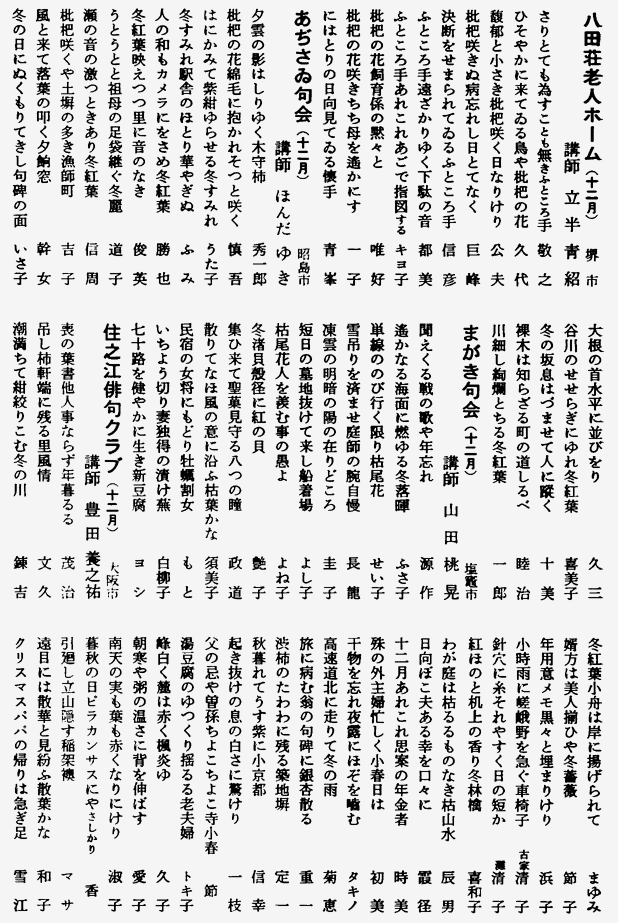 八田荘老人ホーム(十二月) 堺市
講師 立半青紹
さりとても為すことも無きふところ手 敬之
ひそやかに来てゐる鳥や枇杷の花 久代
馥郁と小さき枇杷咲く日なりけり 公夫
枇杷咲きぬ病忘れし日とてなく 巨峰
決断をせまられてゐるふところ手 信彦
ふところ手遠ざかりゆく下駄の音 都美
ふところ手あれこれあごで指図する キヨ子
枇杷の花飼育係の黙々と 唯好
枇杷の花咲きちち母を遙かにす 一子
にはとりの日向見てゐる懐手 青峯
あぢさゐ句会(十二月) 昭島市
講師 ほんだゆき
夕雲の影はしりゆく木守柿 秀一郎
枇杷の花綿毛に抱かれそつと咲く 慎吾
はにかみて紫紺ゆらせる冬すみれ うた子
冬すみれ駅舎のほとり華やぎぬ ふみ
人の和もカメラにをさめ冬紅葉 勝也
冬紅葉映えつつ里に音のなき 俊英
うとうとと祖母の足袋継ぐ冬麗 道子
瀬の音の激つときあり冬紅葉 信周
枇杷咲くや土塀の多き漁師町 吉子
風と来て落葉の叩く夕餉窓 幹女
冬の日にぬくもりてきし句碑の面 いさ子
大根の首水平に並びをり 久三
谷川のせせらぎにゆれ冬紅葉 喜美子
冬の坂息はづませて人に蹤く 十美
裸木は知らざる町の道しるべ 睦治
川細し絢爛とちる冬紅葉 一郎
まがき句会(十二月) 塩竈市
講師 山田桃晃
聞えくる戦の歌や年忘れ 源作
遙かなる海面に燃ゆる冬落暉 ふさ子
単線ののび行く限り枯尾花 せい子
雪吊りを済ませ庭師の腕自慢 長龍
凍雲の明暗の陽の在りどころ 圭子
短日の墓地抜けて来し船着場 よし子
枯尾花人を羨む事の愚よ よね子
冬渚貝殻径に紅の貝 艶子
集ひ来て聖菓見守る八つの瞳 政道
散りてなほ風の意に沿ふ枯葉かな 須美子
民宿の女将にもどり牡蠣割女 もと
いちよう切り妻独得の漬け蕪 白柳子
七十路を健やかに生き新豆腐 ヨシ
住之江俳句クラブ(十二月) 大阪市
講師 豊田養之祐
喪の葉書他人事ならず年暮るる 茂治
吊し柿軒端に残る里風情 文久
潮満ちて紺絞りこむ冬の川 錬吉
冬紅葉小舟は岸に揚げられて まゆみ
婿方は美人揃ひや冬薔薇 節子
年用意メモ黒々と埋まりけり 浜子
小時雨に嵯峨野を急ぐ車椅子 古家清子
針穴に糸それやすく日の短か 灘清子
紅ほのと机上の香り冬林檎 喜和子
わが庭は枯るるものなき枯山水 辰男
日向ぼこ夫ある幸を口々に 霞径
十二月あれこれ思案の年金者 時美
殊の外主婦忙しく小春日は 初美
干物を忘れ夜露にほぞを噛む タキノ
高速道北に走りて冬の雨 菊恵
旅に病む翁の句碑に銀杏散る 重一
渋柿のたわわに残る築地塀 定一
秋暮れてうす紫に小京都 信幸
起き抜けの息の白さに驚けり 一枝
父の忌や曽孫ちょこちょこ寺小春 節
湯豆腐のゆつくり揺るる老夫婦 トキ子
峰白く麓は赤く楓炎ゆ 久子
朝寒や粥の温さに背を伸ばす 愛子
南天の実も葉も赤くなりにけり 淑子
暮秋の日ピラカンサスにやさしかり 香
引廻し立山隠す稲架襖 マサ
遠目には散華と見紛ふ散葉かな 和子
クリスマスパパの帰りは急ぎ足 雪江